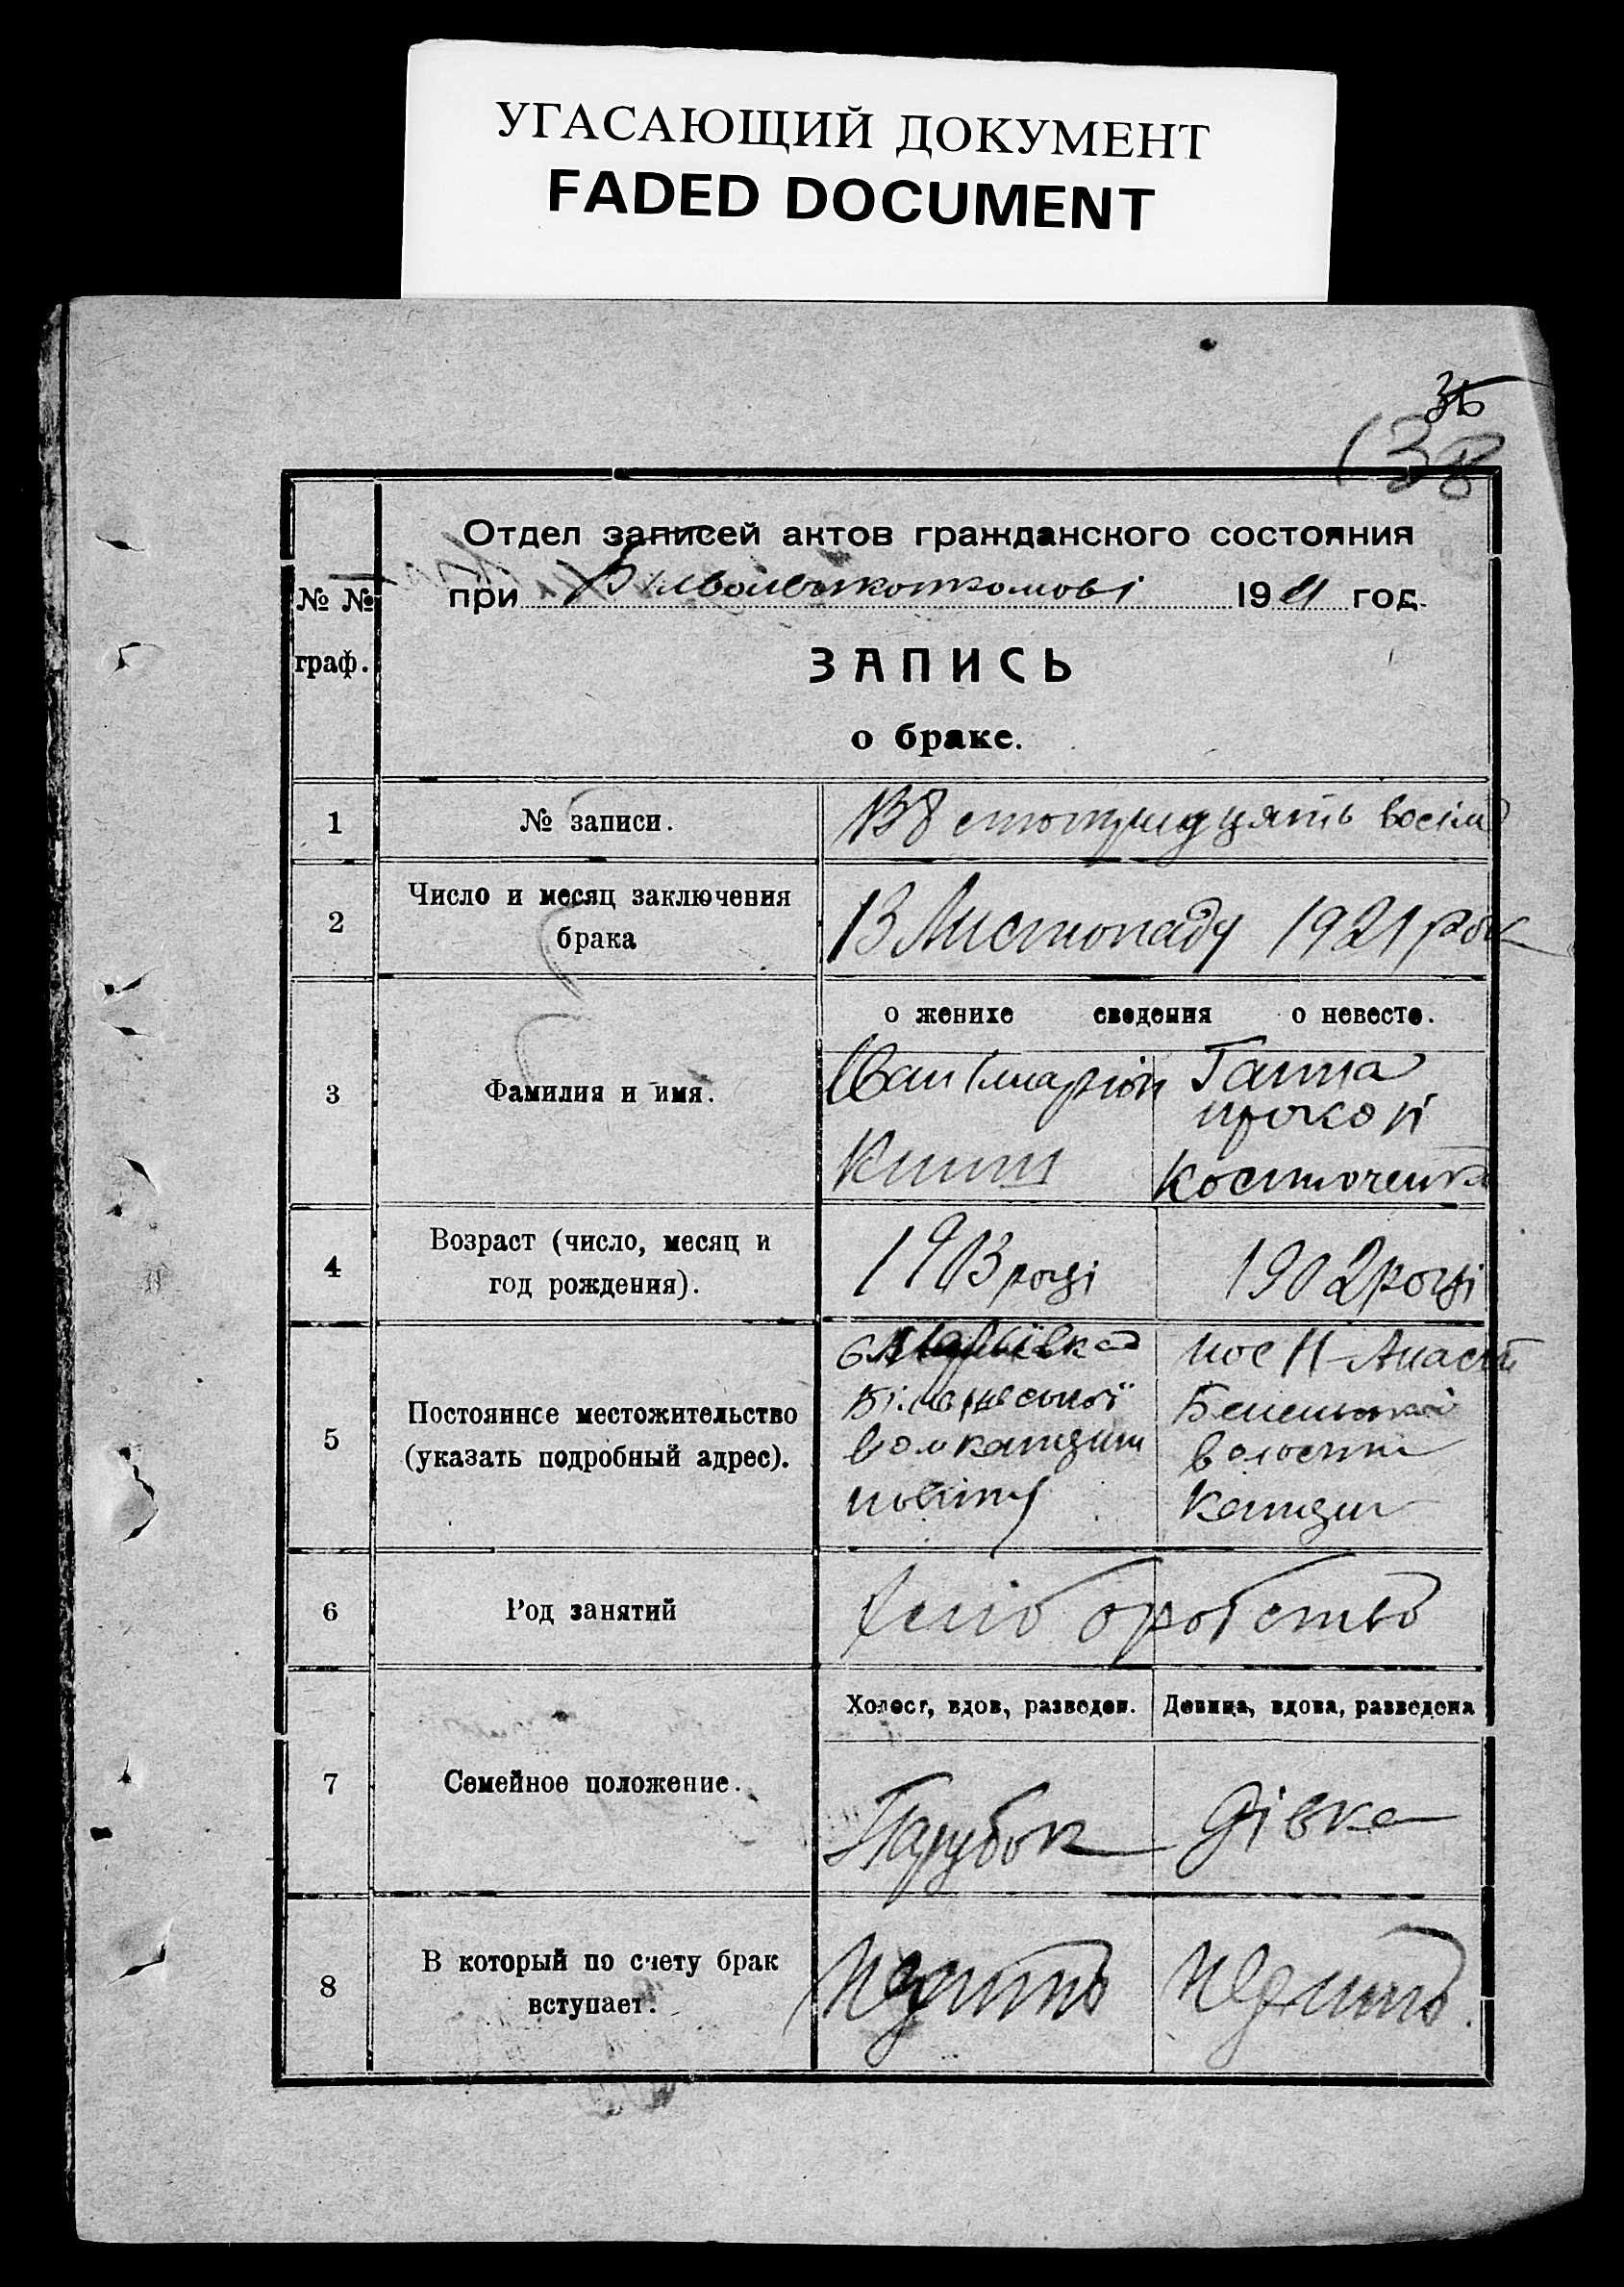 УГАСАЮЩИЙ ДОКУМЕНТ
FADED DOCUMENT
38
№ №
граф.
Отдел записей актов гражданского состояния
при 1921 год.
ЗАПИСЬ
о браке.
1
№ записи.
138 стотридцять восім
2
Число и месяц заключения
брака
13 Листопаду 1921 рок
о женихе сведения о невесте.
3
Фамилия и имя.
Іван Іларіон
Ганна
прокоп
Костюченко
4
Возраст (число, месяц и
год рождения).
1903 році
1902 році
5
Постоянное местожительство
(указать подробный адрес).
вол
повіту
пос Н-Анаст
волости
6
Род занятий
Хліборобство
7
Семейное положение.
Холост, вдов, разведен.
Девица, вдова, разведена
Парубок
Дівка
8
В который по счету брак
вступает.